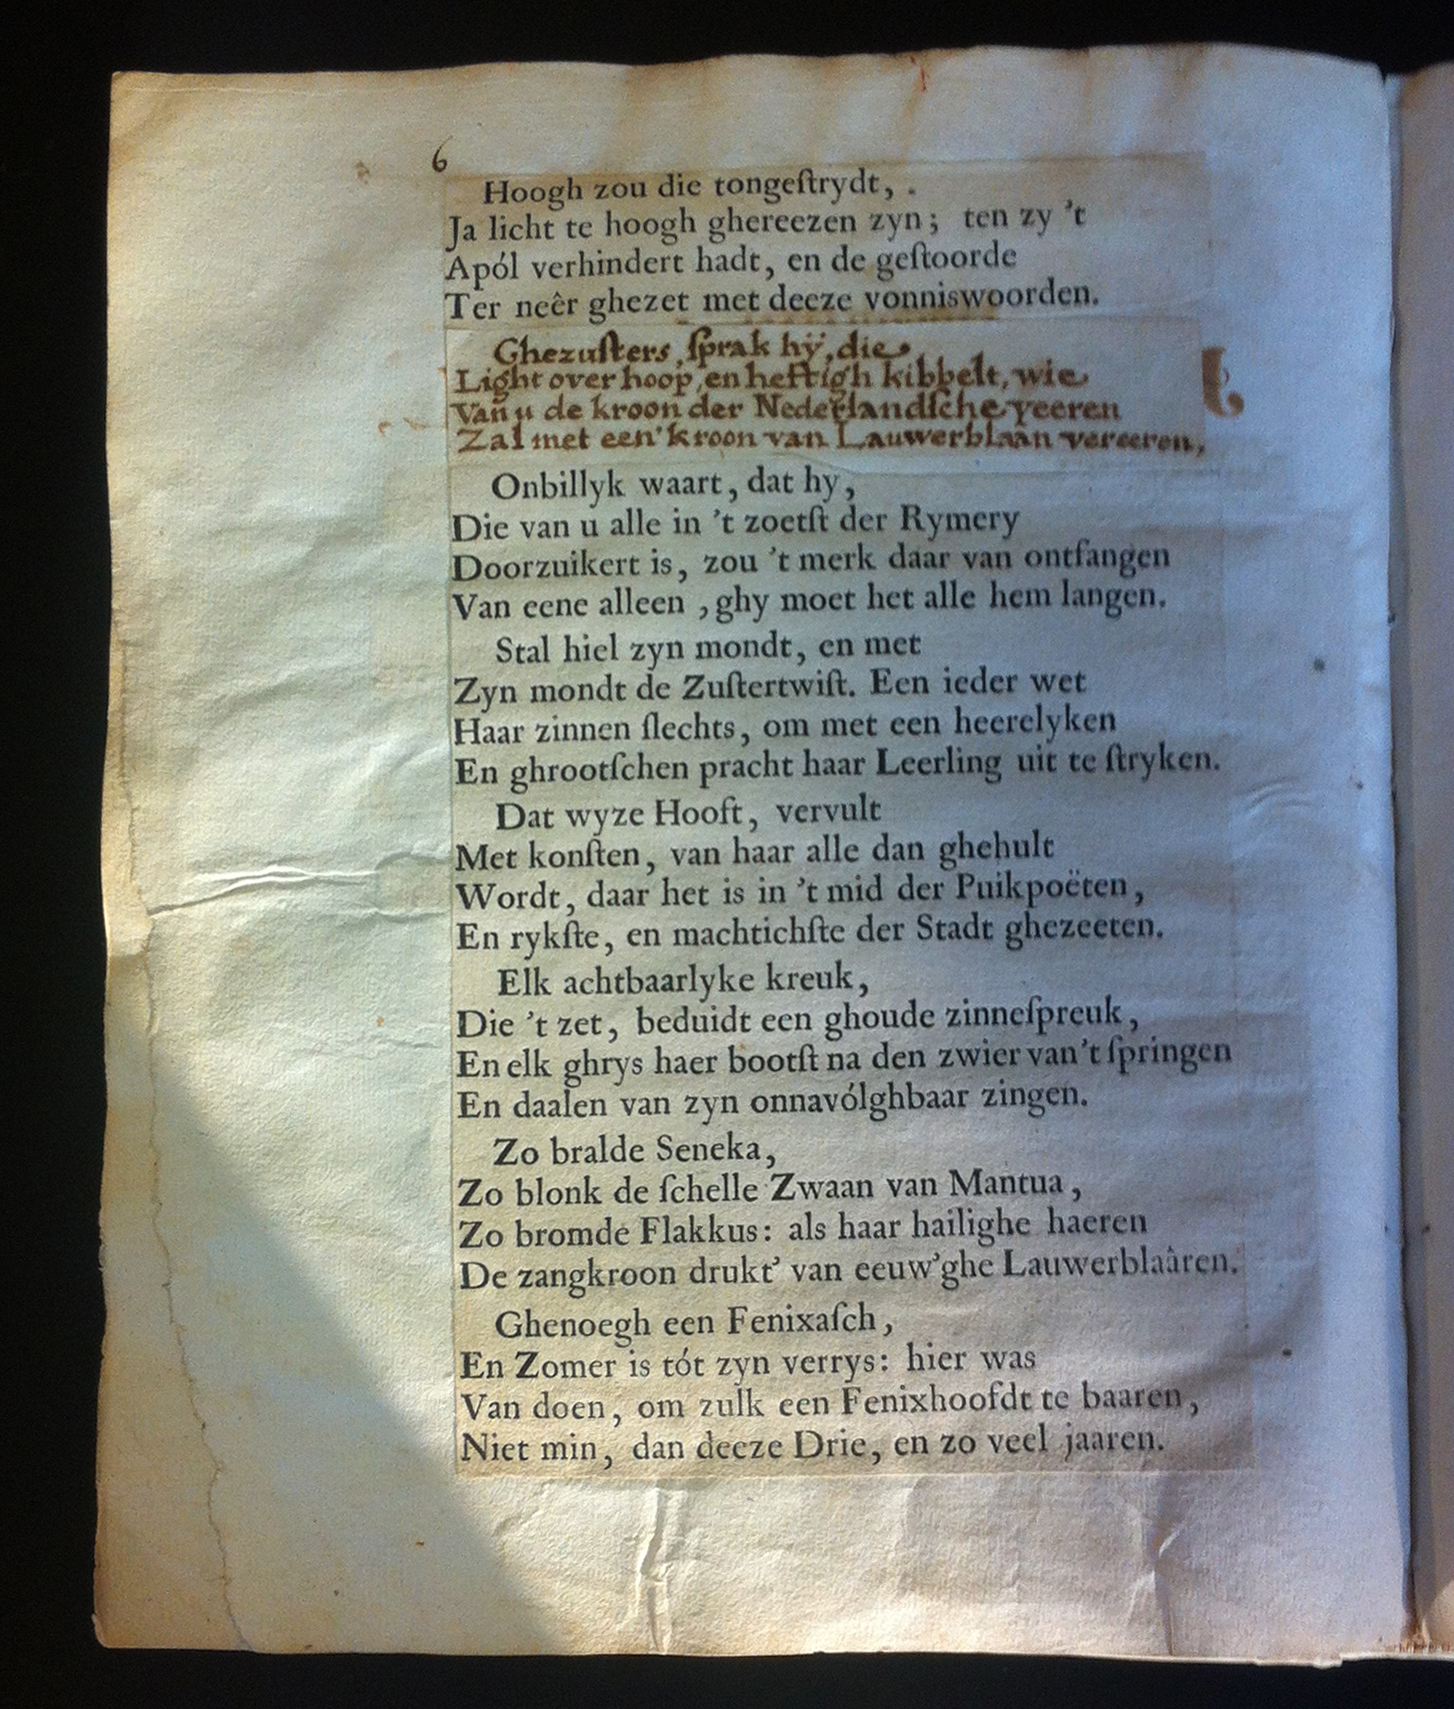 6
Hoogh zou die tongeſtrydt,
Ja licht te hoogh ghereezen zyn; ten zy 't
Apól verhindert hadt, en de geſtoorde
Ter neêr ghezet met deeze vonniswoorden.
Ghezuſters, ſprak hÿ, die
Light over hoop, en heftigh kibbelt, wie
Van u de kroon der Nederlandſche veeren
Zal met een' kroon van Lauwerblaân vereeren,
Onbillyk waart, dat hy,
Die van u alle in 't zoetſt der Rymery
Doorzuikert is, zou 't merk daar van ontfangen
Van eene alleen, ghy moet het alle hem langen.
Stal hiel zyn mondt, en met
Zyn mondt de Zuſtertwiſt. Een ieder wet
Haar zinnen ſlechts, om met een heerelyken
En ghrootſchen pracht haar Leerling uit te ſtryken.
Dat wyze Hooft, vervult
Met konſten, van haar alle dan ghehult
Wordt, daar het is in 't mid der Puikpoëten,
En rykſte, en machtichſte der Stadt ghezeeten.
Elk achtbaarlyke kreuk,
Die 't zet, beduidt een ghoude zinneſpreuk,
En elk ghrys haer bootſt na den zwier van 't ſpringen
En daalen van zyn onnavólghbaar zingen.
Zo bralde Seneka,
Zo blonk de ſchelle Zwaan van Mantua,
Zo bromde Flakkus: als haar hailighe haeren
De zangkroon drukt' van eeuw'ghe Lauwerblaâren.
Ghenoegh een Fenixaſch,
En Zomer is tót zyn verrys: hier was
Van doen, om zulk een Fenixhoofdt te baaren,
Niet min, dan deeze Drie, en zo veel jaaren.